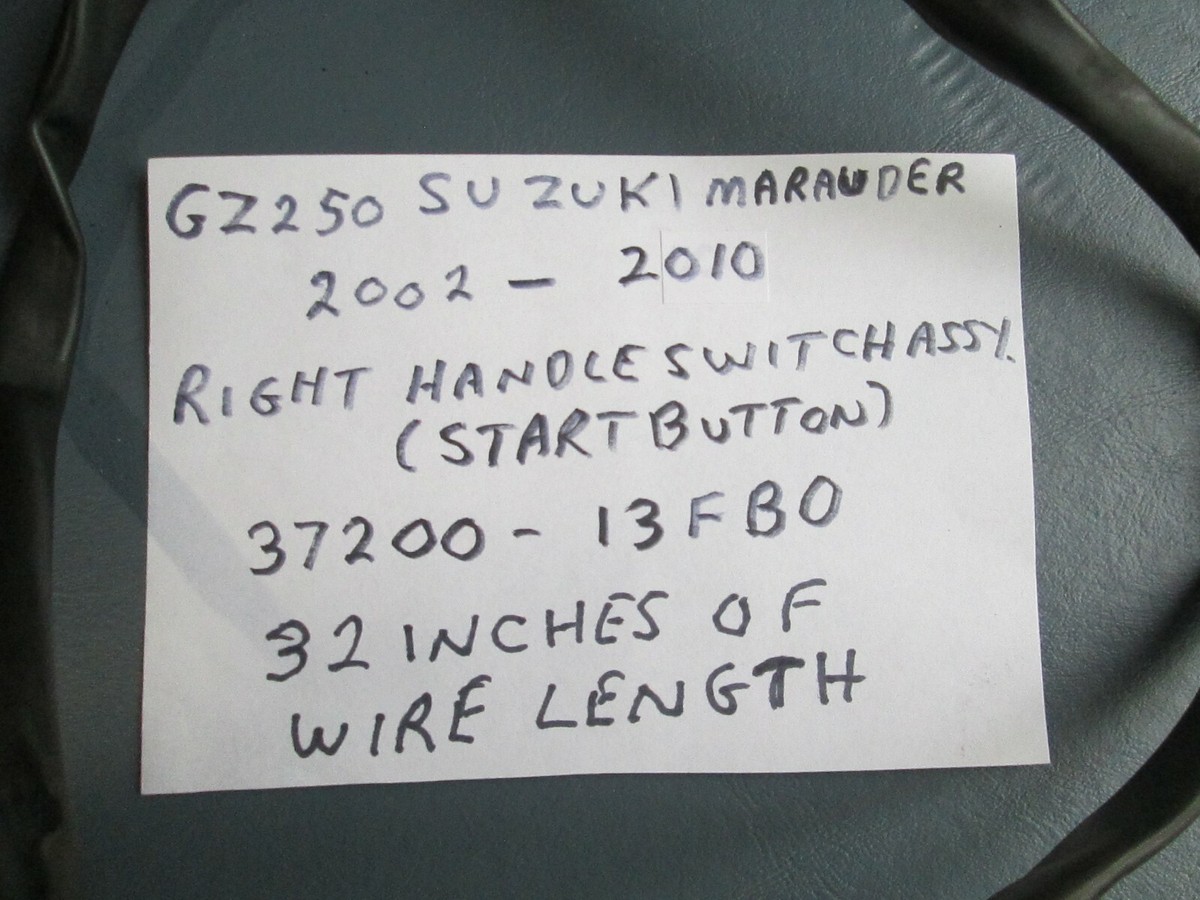 GZ250 SUZUKI MARAUDER
2002 - 2010
RIGHT HANDLE SWITCH ASSY.
(START BUTTON)
37200 - 13FB0
32 INCHES OF
WIRE LENGTH